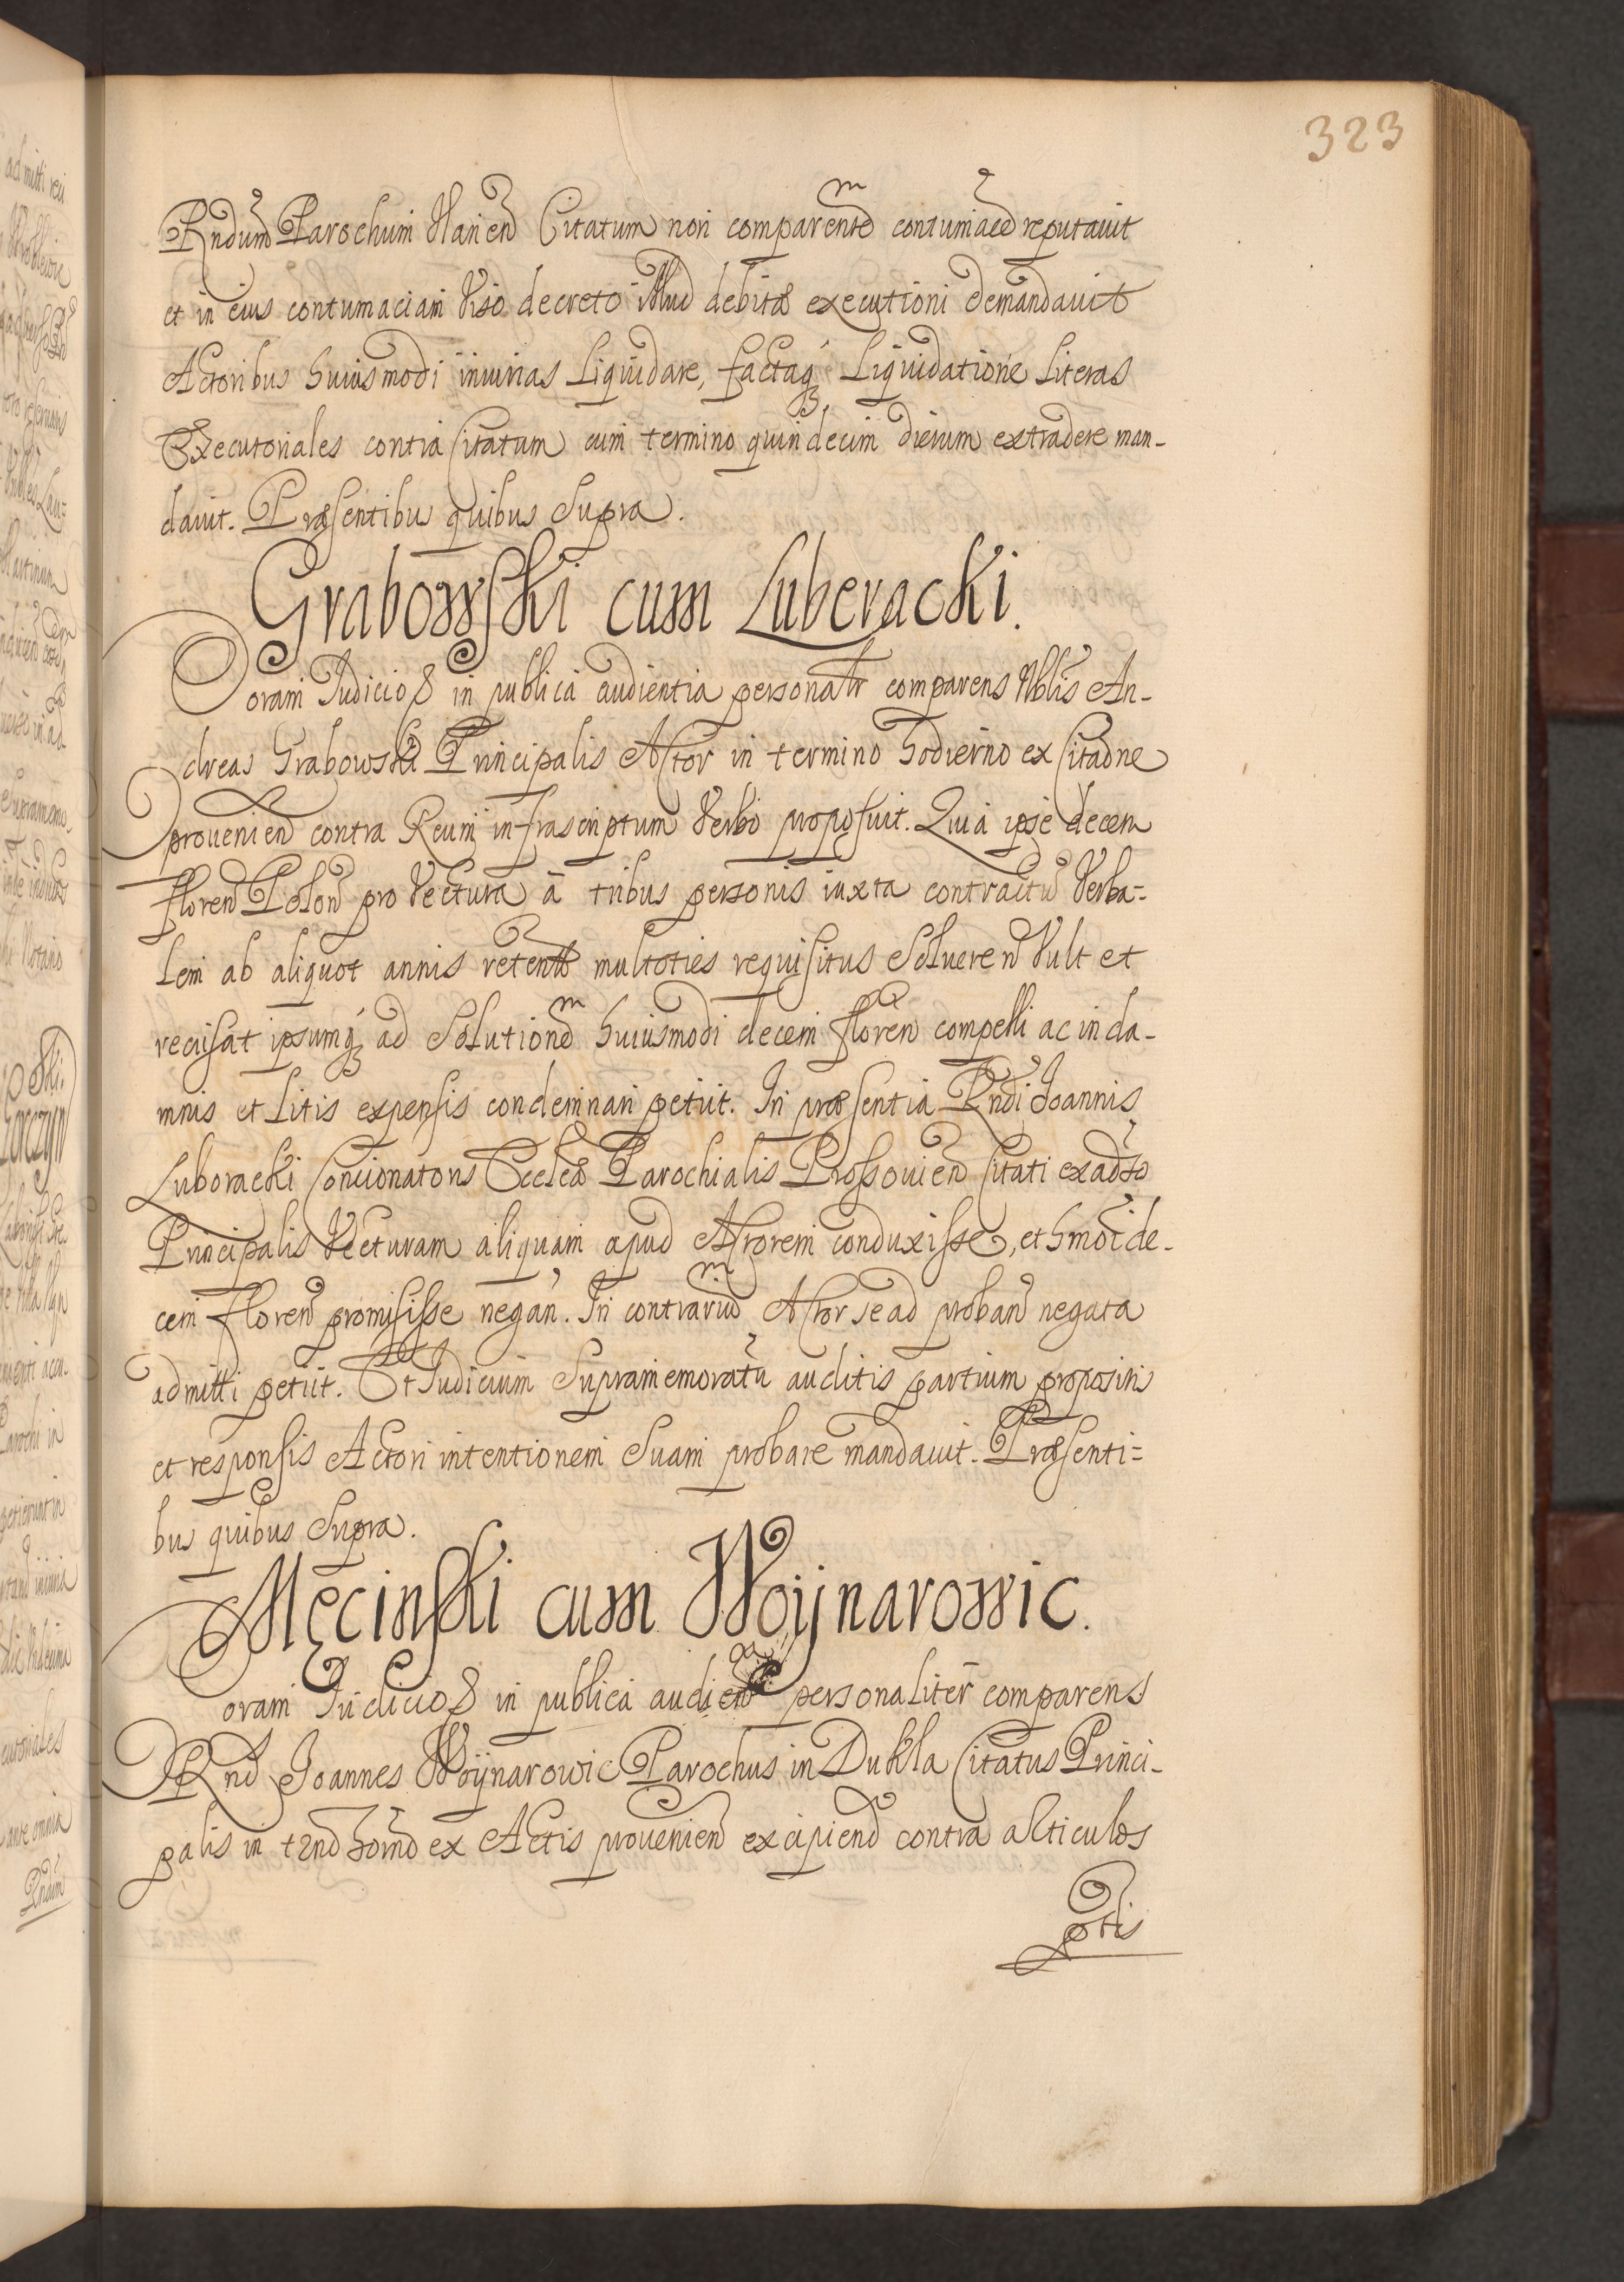 323
Rndum Parochum Vanien Citatum non comparentem contumacem reputavit
et in eius contumaciam Viso decreto illud debitæ executioni demandavit
Actoribus huiusmodi iniurias Liquidare, factaq Liquidatione Literas
Executoriales contra Citatum cum termino quindecim dierum extradere man-
davit. Præsentibus quibus Supra.
Grabowski cum Luberacki.
Coram Judicio & in publica audientia personalr comparens Nblis An-
dreas Grabowski Principalis Actor in termino hodierno ex Citaone
provenien contra Reum infrascriptum Verbo proposuit. Quia ipse decem
floren Polon pro Vectura a tribus personis iuxta contractu Verba-
lem ab aliquot annis retentos multoties requisitus Solvere n Vult et
recusat ipsumq ad Solutionem huiusmodi decem floren compelli ac in da-
mnis et Litis expensis condemnari petiit. In præsentia Rndi Joannis
Luboracki Concionatoris Ecclæ Parochialis Prossovien Citati ex adso
Principalis Vecturam aliquam apud Actorem conduxisse, et hmoi de-
cem floren promisisse negan. In contrarium Actor se ad proban negata
admitti petiit. Et Judicium Supramemoratu auditis partium propositis
et responsis Actori intentionem Suam probare mandavit. Præsenti-
bus quibus Supra.
Męcinski cum Woijnarowic.
Coram Judicio & in publica audien personaliter comparens
Rnd Joannes Woijnarowic Parochus in Dukla Citatus Princi-
palis in tno hoino ex Actis provenien excipiend contra articulos
ptis